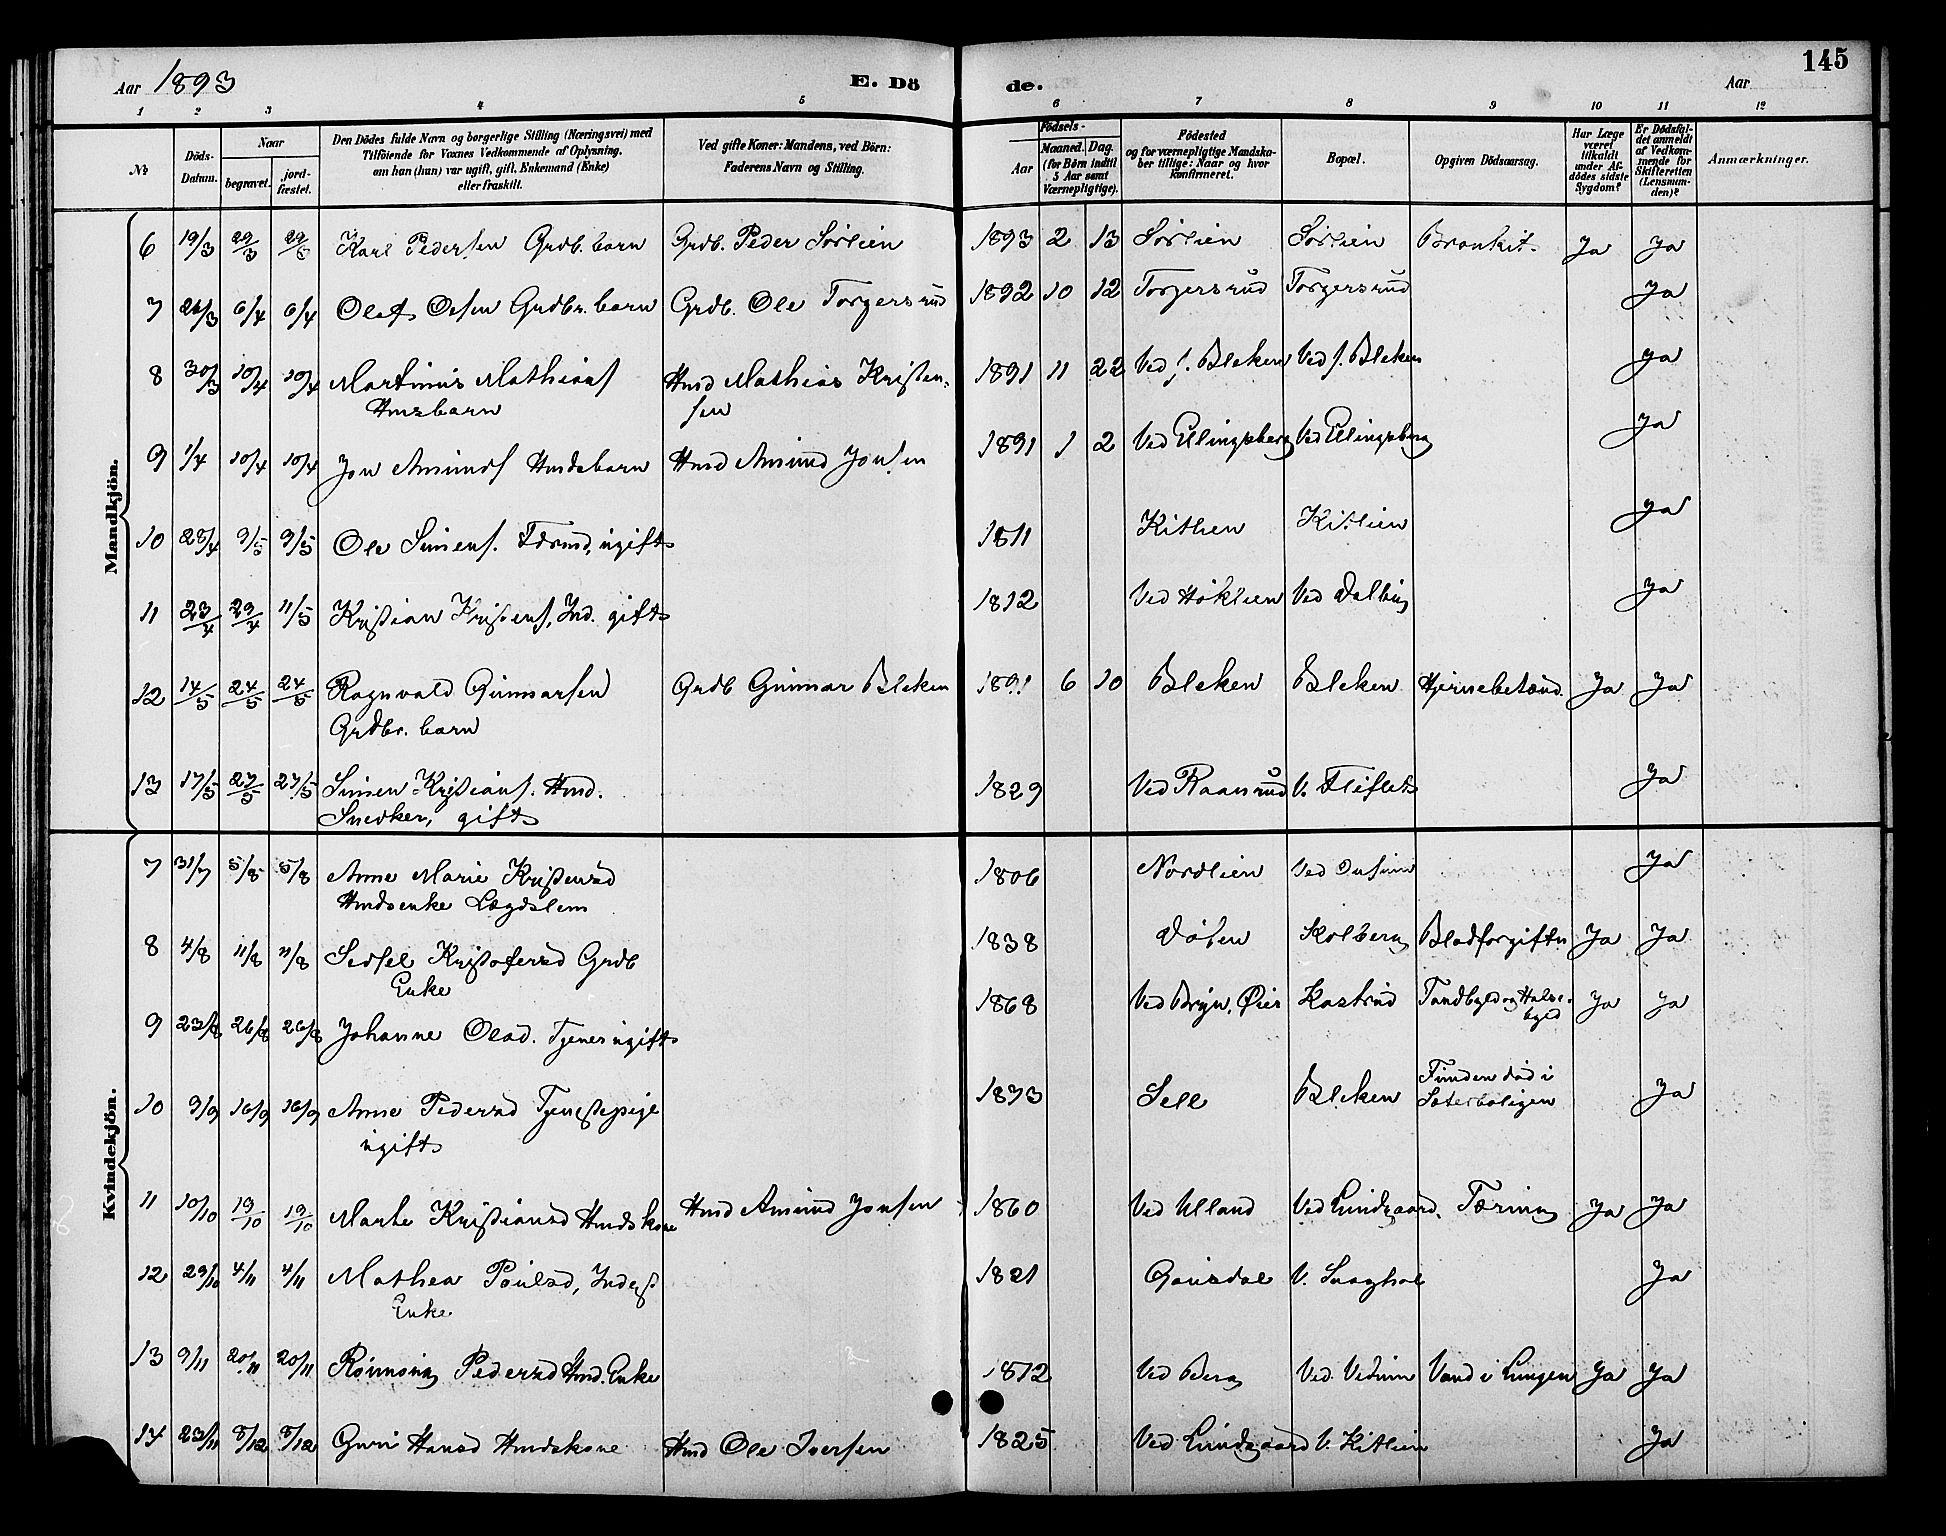 145
Aar 1893 E. Dö de. Aar
1 2 3 4 5 6 7 8 9 10 11 12
№ Döds-Datum. Naar begravet. jord-fæstet. Den Dödes fulde Navn og borgerlige Stilling (Næringsvei) med Tilföiende for Voxnes Vedkommende af Oplysning, om han (hun) var ugift, gift, Enkemand (Enke) eller fraskilt. Ved gifte Koner: Mandens, ved Börn: Faderens Navn og Stilling. Födsels- Aar Maaned. Dag. (for Börn indtil 5 Aar samt Værnepligtige). Födested og for værnepligtige Mandskaber tillige: Naar og hvor konfirmeret. Bopæl. Opgiven Dödsaarsag. Har Læge været tilkaldt under Afdödes sidste Sygdom? Er Dödsfaldet anmeldt af Vedkommende for Skifteretten (Lensmanden)? Anmærkninger.
Mandkjön.
6 19/3 29/3 29/3 Karl Pedersen Grdb. barn Grdb. Peder Sørlien 1893 2 13 Sørlien Sørlien Bronkit. Ja Ja
7 26/3 6/4 6/4 Olaf Olsen Grdbr. barn Grdb. Ole Torgersrud 1892 10 12 Torgersrud Torgersrud Ja
8 30/3 10/4 10/4 Martinius Mathiass Hmd Mathias Kristen- 1891 11 22 Ved s. Bleken Ved s. Bleken Ja
Hmsbarn sen
9 1/4 10/4 10/4 Jon Amunds Hmdsbarn Hmd Amund Jonsen 1891 1 2 Ved Ellingsberg Ved Ellingsberg Ja
10 28/4 9/5 9/5 Ole Simens. ugift 1811 Kitlien Kitlien Ja
11 23/4 29/4 11/5 Kristian Kristens, Ind. gift 1812 Ved Høklien Ved Dalbing Ja
12 14/5 24/5 24/5 Ragnvald Gunnarsen Grdb Gunnar Bleken 1891 6 10 Bleken Bleken Hjernebetænd. Ja Ja
Grdbr. barn
13 17/5 27/5 27/5 Simen Kristians. Hmd. 1829 Ved Raansrud V. Fliflet Ja
Snedker, gift
Kvindekjön.
7 31/7 5/8 5/8 Anne Marie Kristensd 1806 Nordlien Ved Ja
Hmdsenke Lægdslem
8 4/8 11/8 11/8 Sidsel Kristofersd Grdb 1838 Døsen Kolberg Blodforgiftn Ja Ja
Enke
9 23/8 26/8 26/8 Johanne Olsd. Tjener ugift 1868 Ved Bryn, Øier Kastrud Tandbyld og Halsbyld Ja Ja
10 9/9 16/9 16/9 Anne Pedersd Tjenestepige 1873 Sell Bleken Funden død i Sæterboligen Ja
ugift
11 10/10 19/10 19/10 Marte Kristiansd Hmdskone Hmd Amund Jonsen 1860 Ved Ulland Ved Lundgaard. Tæring Ja Ja
12 29/10 4/11 4/11 Mathea Paulsd, Inderst 1821 Gausdal V. Snaghol Ja
Enke
13 9/11 20/11 20/11 Rønnaug Pedersd Hmd. Enke 1812 Ved Berg Ved Vedum Vand i Lungen Ja Ja
14 23/11 8/12 8/12 Guri Hansd Hmdskone Hmd Ole Iversen 1825 Ved Lundgaard V. Kitlien Ja